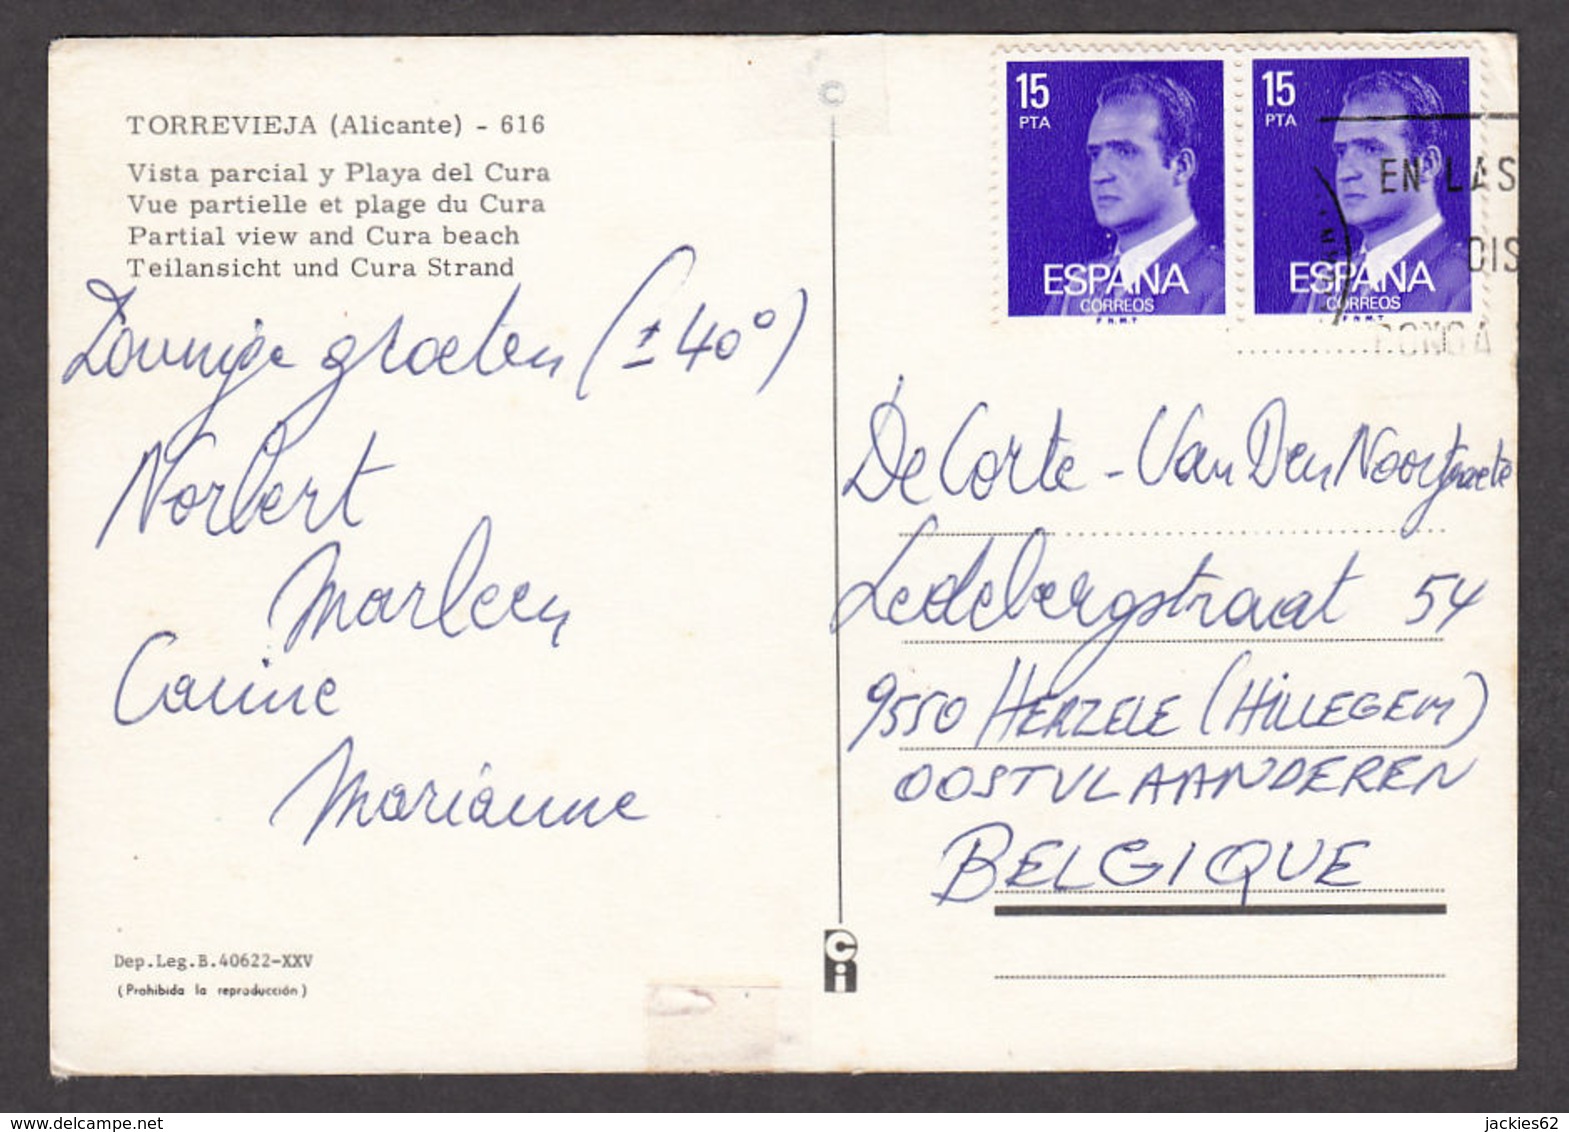 TORREVIEJA (Alicante) - 616
Vista parcial y Playa del Cura
Vue partielle et plage du Cura
Partial view and Cura beach
Teilansicht und Cura Strand
Zonnige groeten (± 40°)
Norbert
Marleen
Carine
Marianne
Dep.Leg.B.40622-XXV
(Prohibida la reproducción)
©
Ci
15
PTA
ESPAÑA
CORREOS
F.N.M.T
15
PTA
ESPAÑA
CORREOS
F.N.M.T
EN LAS
DIS
PONGA
De Corte - Van Den Noortgaete
Ledebergstraat 54
9550 HERZELE (HILLEGEM)
OOSTVLAANDEREN
BELGIQUE
www.delcampe.net
jackies62